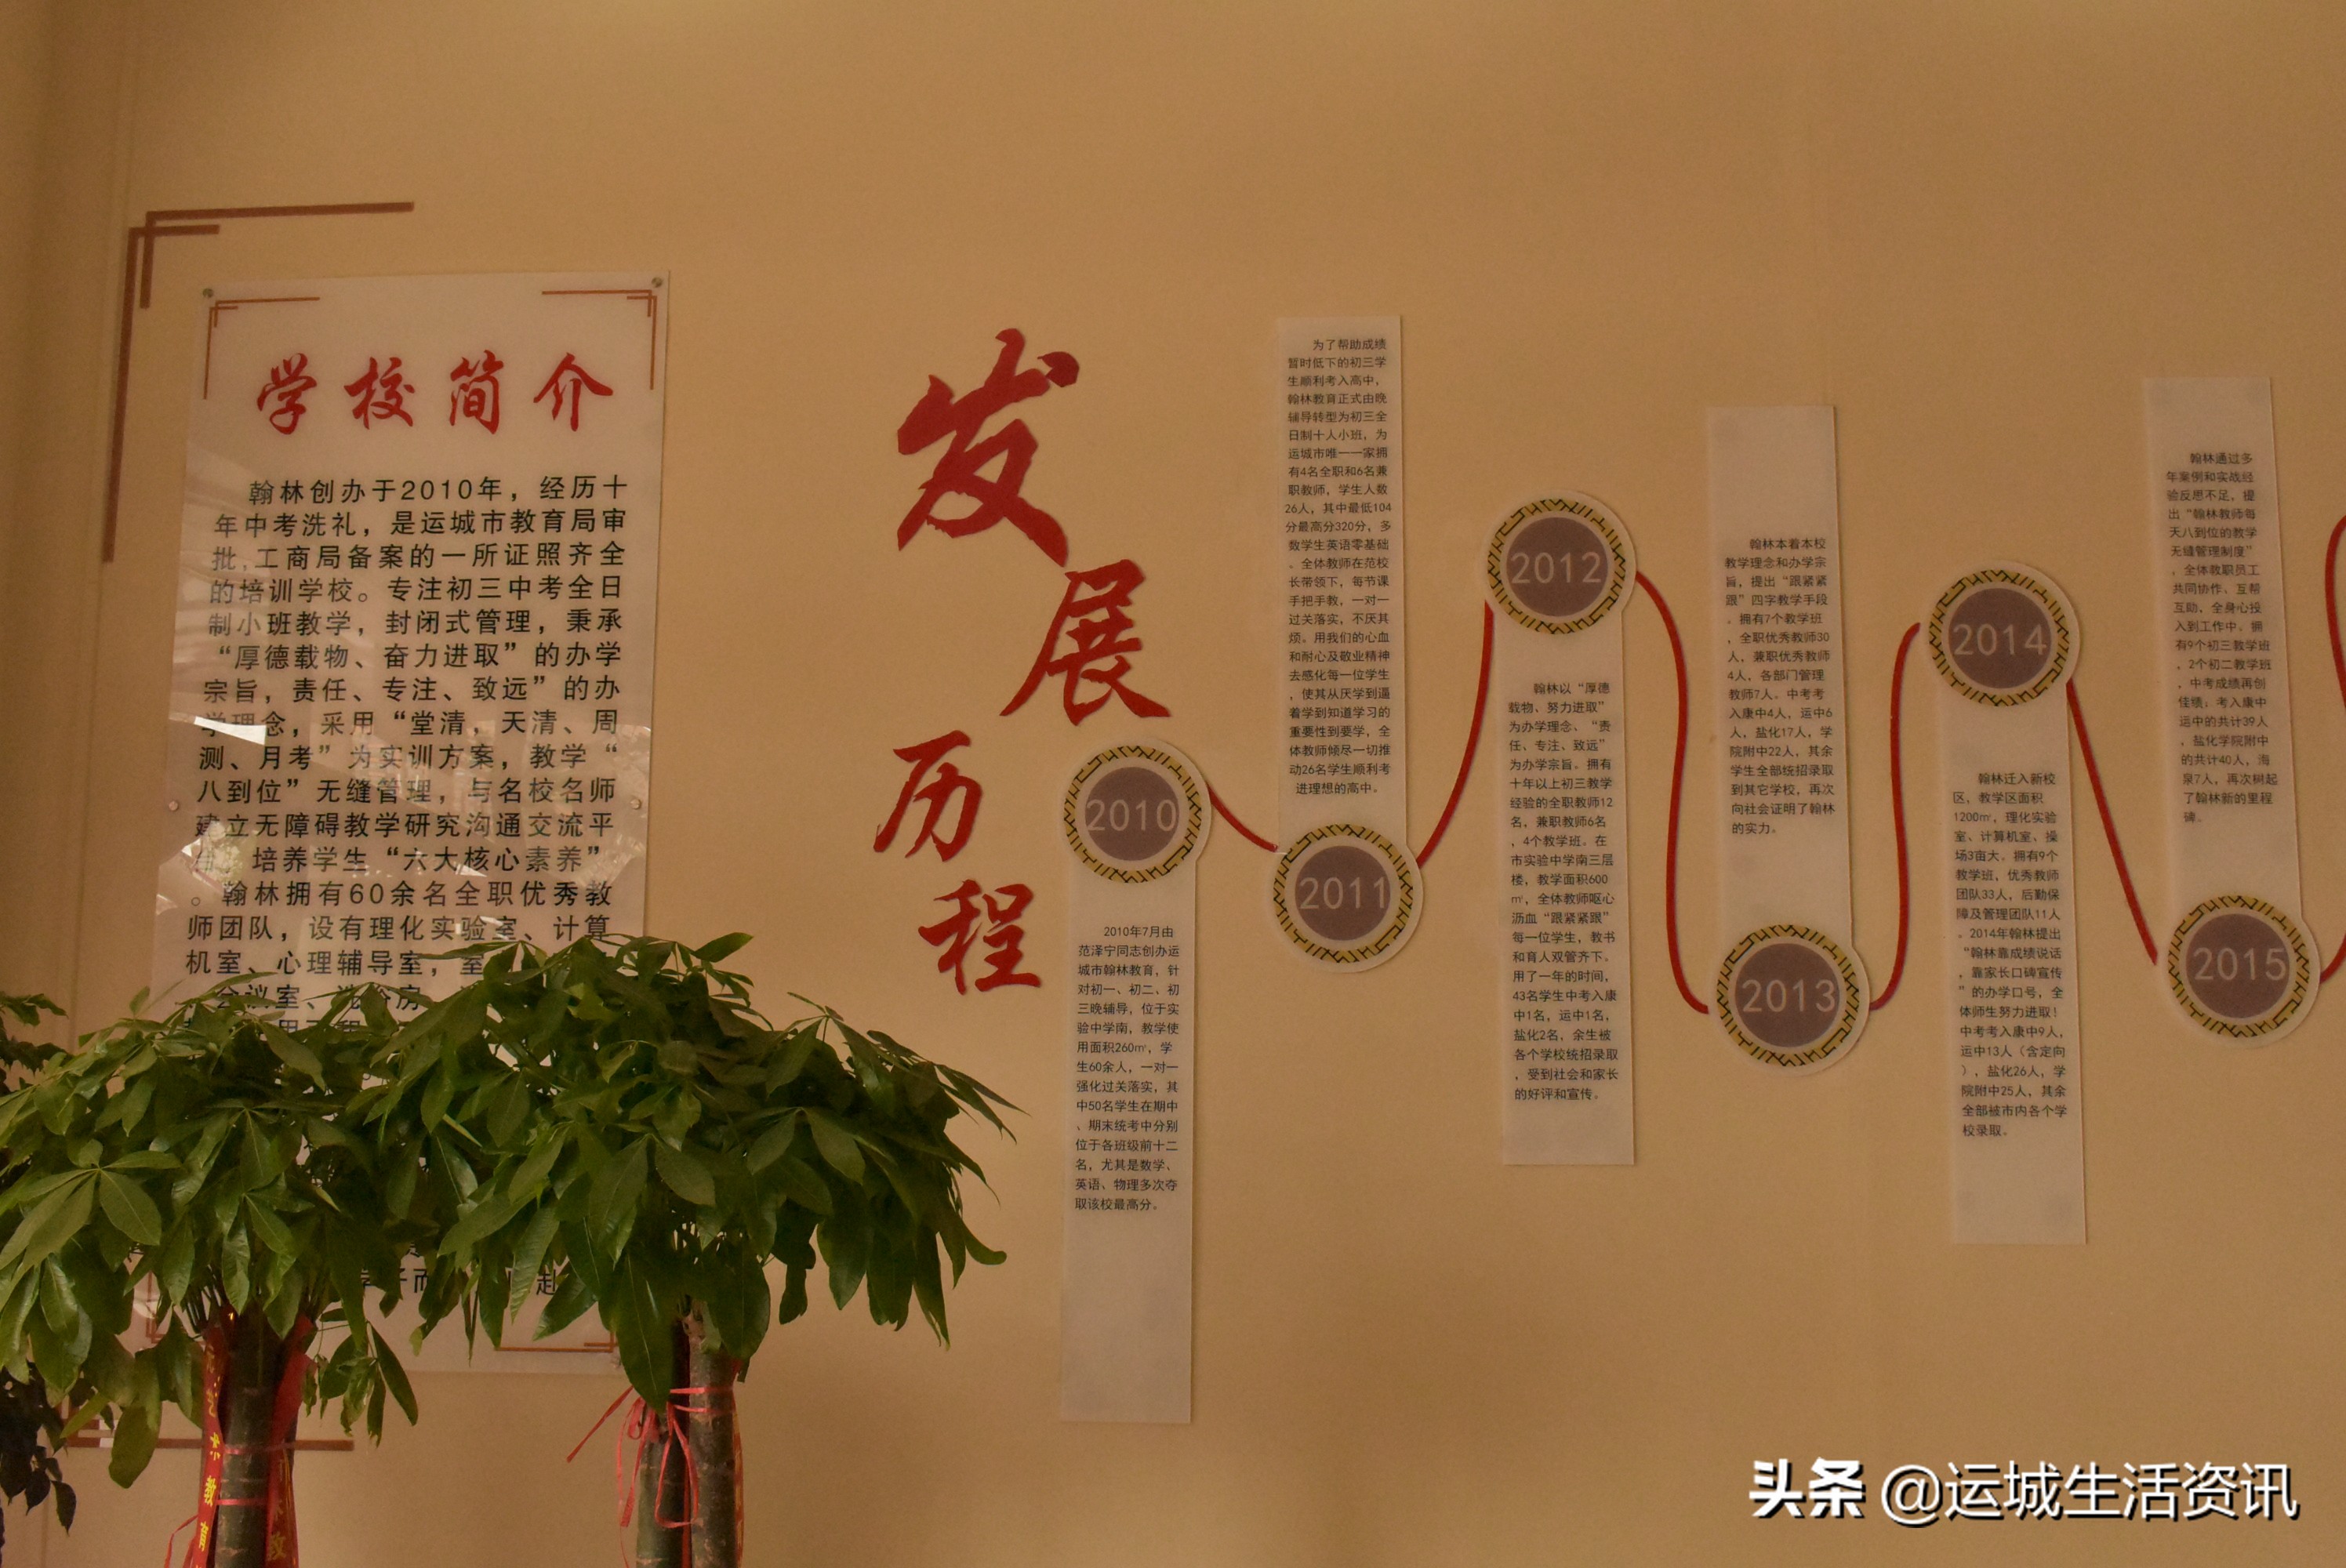 学校简介
翰林创办于2010年，经历十
年中考洗礼，是运城市教育局审
批,工商局备案的一所证照齐全
的培训学校。专注初三中考全日
制小班教学，封闭式管理，秉承
“厚德载物、奋力进取”的办学
宗旨，责任、专注、致远”的办
学理念，采用“堂清，天清、周
测、月考”为实训方案，教学“
八到位”无缝管理，与名校名师
建立无障碍教学研究沟通交流平
培养学生“六大核心素养”
。翰林拥有60余名全职优秀教
师团队，设有理化实验室、计算
机室、心理辅导室，室
会议室、洗
发
展
历
程
2010
2010年7月由
范泽宁同志创办运
城市翰林教育，针
对初一、初二、初
三晚辅导，位于实
验中学南，教学使
用面积260㎡，学
生60余人，一对一
强化过关落实，其
中50名学生在期中
、期末统考中分别
位于各班级前十二
名，尤其是数学、
英语、物理多次夺
取该校最高分。
为了帮助成绩
暂时低下的初三学
生顺利考入高中，
翰林教育正式由晚
辅导转型为初三全
日制十人小班，为
运城市唯一一家拥
有4名全职和6名兼
职教师，学生人数
26人，其中最低104
分最高分320分，多
数学生英语零基础
。全体教师在范校
长带领下，每节课
手把手教，一对一
过关落实，不厌其
烦。用我们的心血
和耐心及敬业精神
去感化每一位学生
，使其从厌学到逼
着学到知道学习的
重要性到要学，全
体教师倾尽一切推
动26名学生顺利考
进理想的高中。
2011
2012
翰林以“厚德
载物、努力进取”
为办学理念、“责
任、专注、致远”
为办学宗旨。拥有
十年以上初三教学
经验的全职教师12
名，兼职教师6名
，4个教学班。在
市实验中学南三层
楼，教学面积600
㎡，全体教师呕心
沥血“跟紧紧跟”
每一位学生，教书
和育人双管齐下。
用了一年的时间，
43名学生中考入康
中1名，运中1名，
盐化2名，余生被
各个学校统招录取
，受到社会和家长
的好评和宣传。
翰林本着本校
教学理念和办学宗
旨，提出“跟紧紧
跟”四字教学手段
。拥有7个教学班
，全职优秀教师30
人，兼职优秀教师
4人，各部门管理
教师7人。中考考
入康中4人，运中6
人，盐化17人，学
院附中22人，其余
学生全部统招录取
到其它学校，再次
向社会证明了翰林
的实力。
2013
2014
翰林迁入新校
区，教学区面积
1200㎡，理化实验
室、计算机室、操
场3亩大。拥有9个
教学班，优秀教师
团队33人，后勤保
障及管理团队11人
。2014年翰林提出
“翰林靠成绩说话
，靠家长口碑宣传
”的办学口号，全
体师生努力进取！
中考考入康中9人，
运中13人（含定向
），盐化26人，学
院附中25人，其余
全部被市内各个学
校录取。
翰林通过多
年案例和实战经
验反思不足，提
出“翰林教师每
天八到位的教学
无缝管理制度”
，全体教职员工
共同协作、互帮
互助，全身心投
入到工作中。拥
有9个初三教学班
，2个初二教学班
，中考成绩再创
佳绩。考入康中
运中的共计39人
，盐化学院附中
的共计40人，海
泉7人，再次树起
了翰林新的里程
碑。
2015
头条 @运城生活资讯